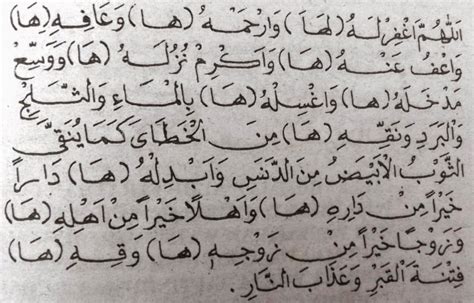 اَللّٰهُمَّ اغْفِرْ لَهُ (لَهَا) وَارْحَمْهُ (هَا) وَعَافِهِ (هَا)
وَاعْفُ عَنْهُ (هَا) وَاَكْرِمْ نُزُلَهُ (هَا) وَوَسِّعْ
مَدْخَلَهُ (هَا) وَاغْسِلْهُ (هَا) بِالْمَاءِ وَالثَّلْجِ
وَالْبَرَدِ وَنَقِّهِ (هَا) مِنَ الْخَطَايَ كَمَا يُنَقَّى
الثَّوْبُ الْاَبْيَضُ مِنَ الدَّنَسِ وَاَبْدِلْهُ (هَا) دَارًا
خَيْرًا مِنْ دَارِهِ (هَا) وَاَهْلًا خَيْرًا مِنْ اَهْلِهِ (هَا)
وَزَوْجًا خَيْرًا مِنْ زَوْجِهِ (هَا) وَقِهِ (هَا)
فِتْنَةَ الْقَبْرِ وَعَذَابَ النَّارِ.